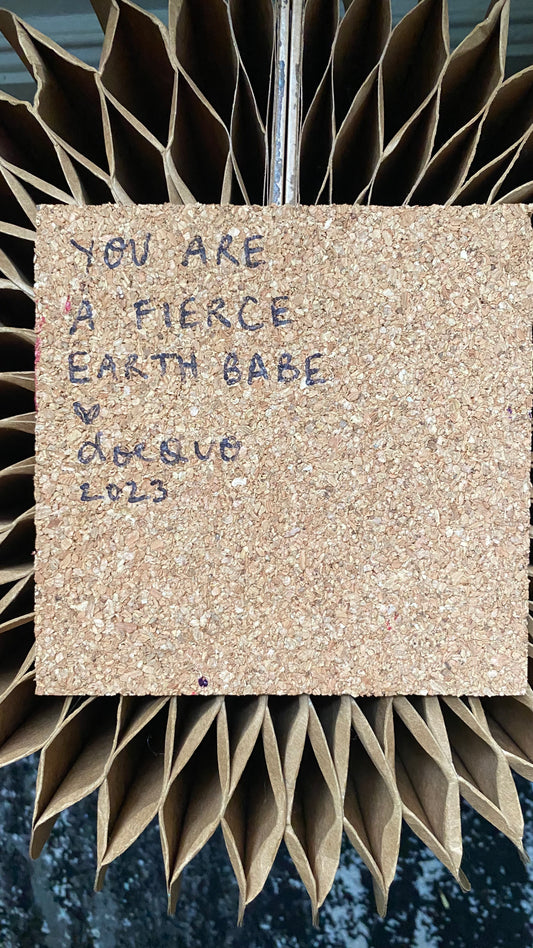 YOU ARE
A FIERCE
EARTH BABE
♥
docQuo
2023